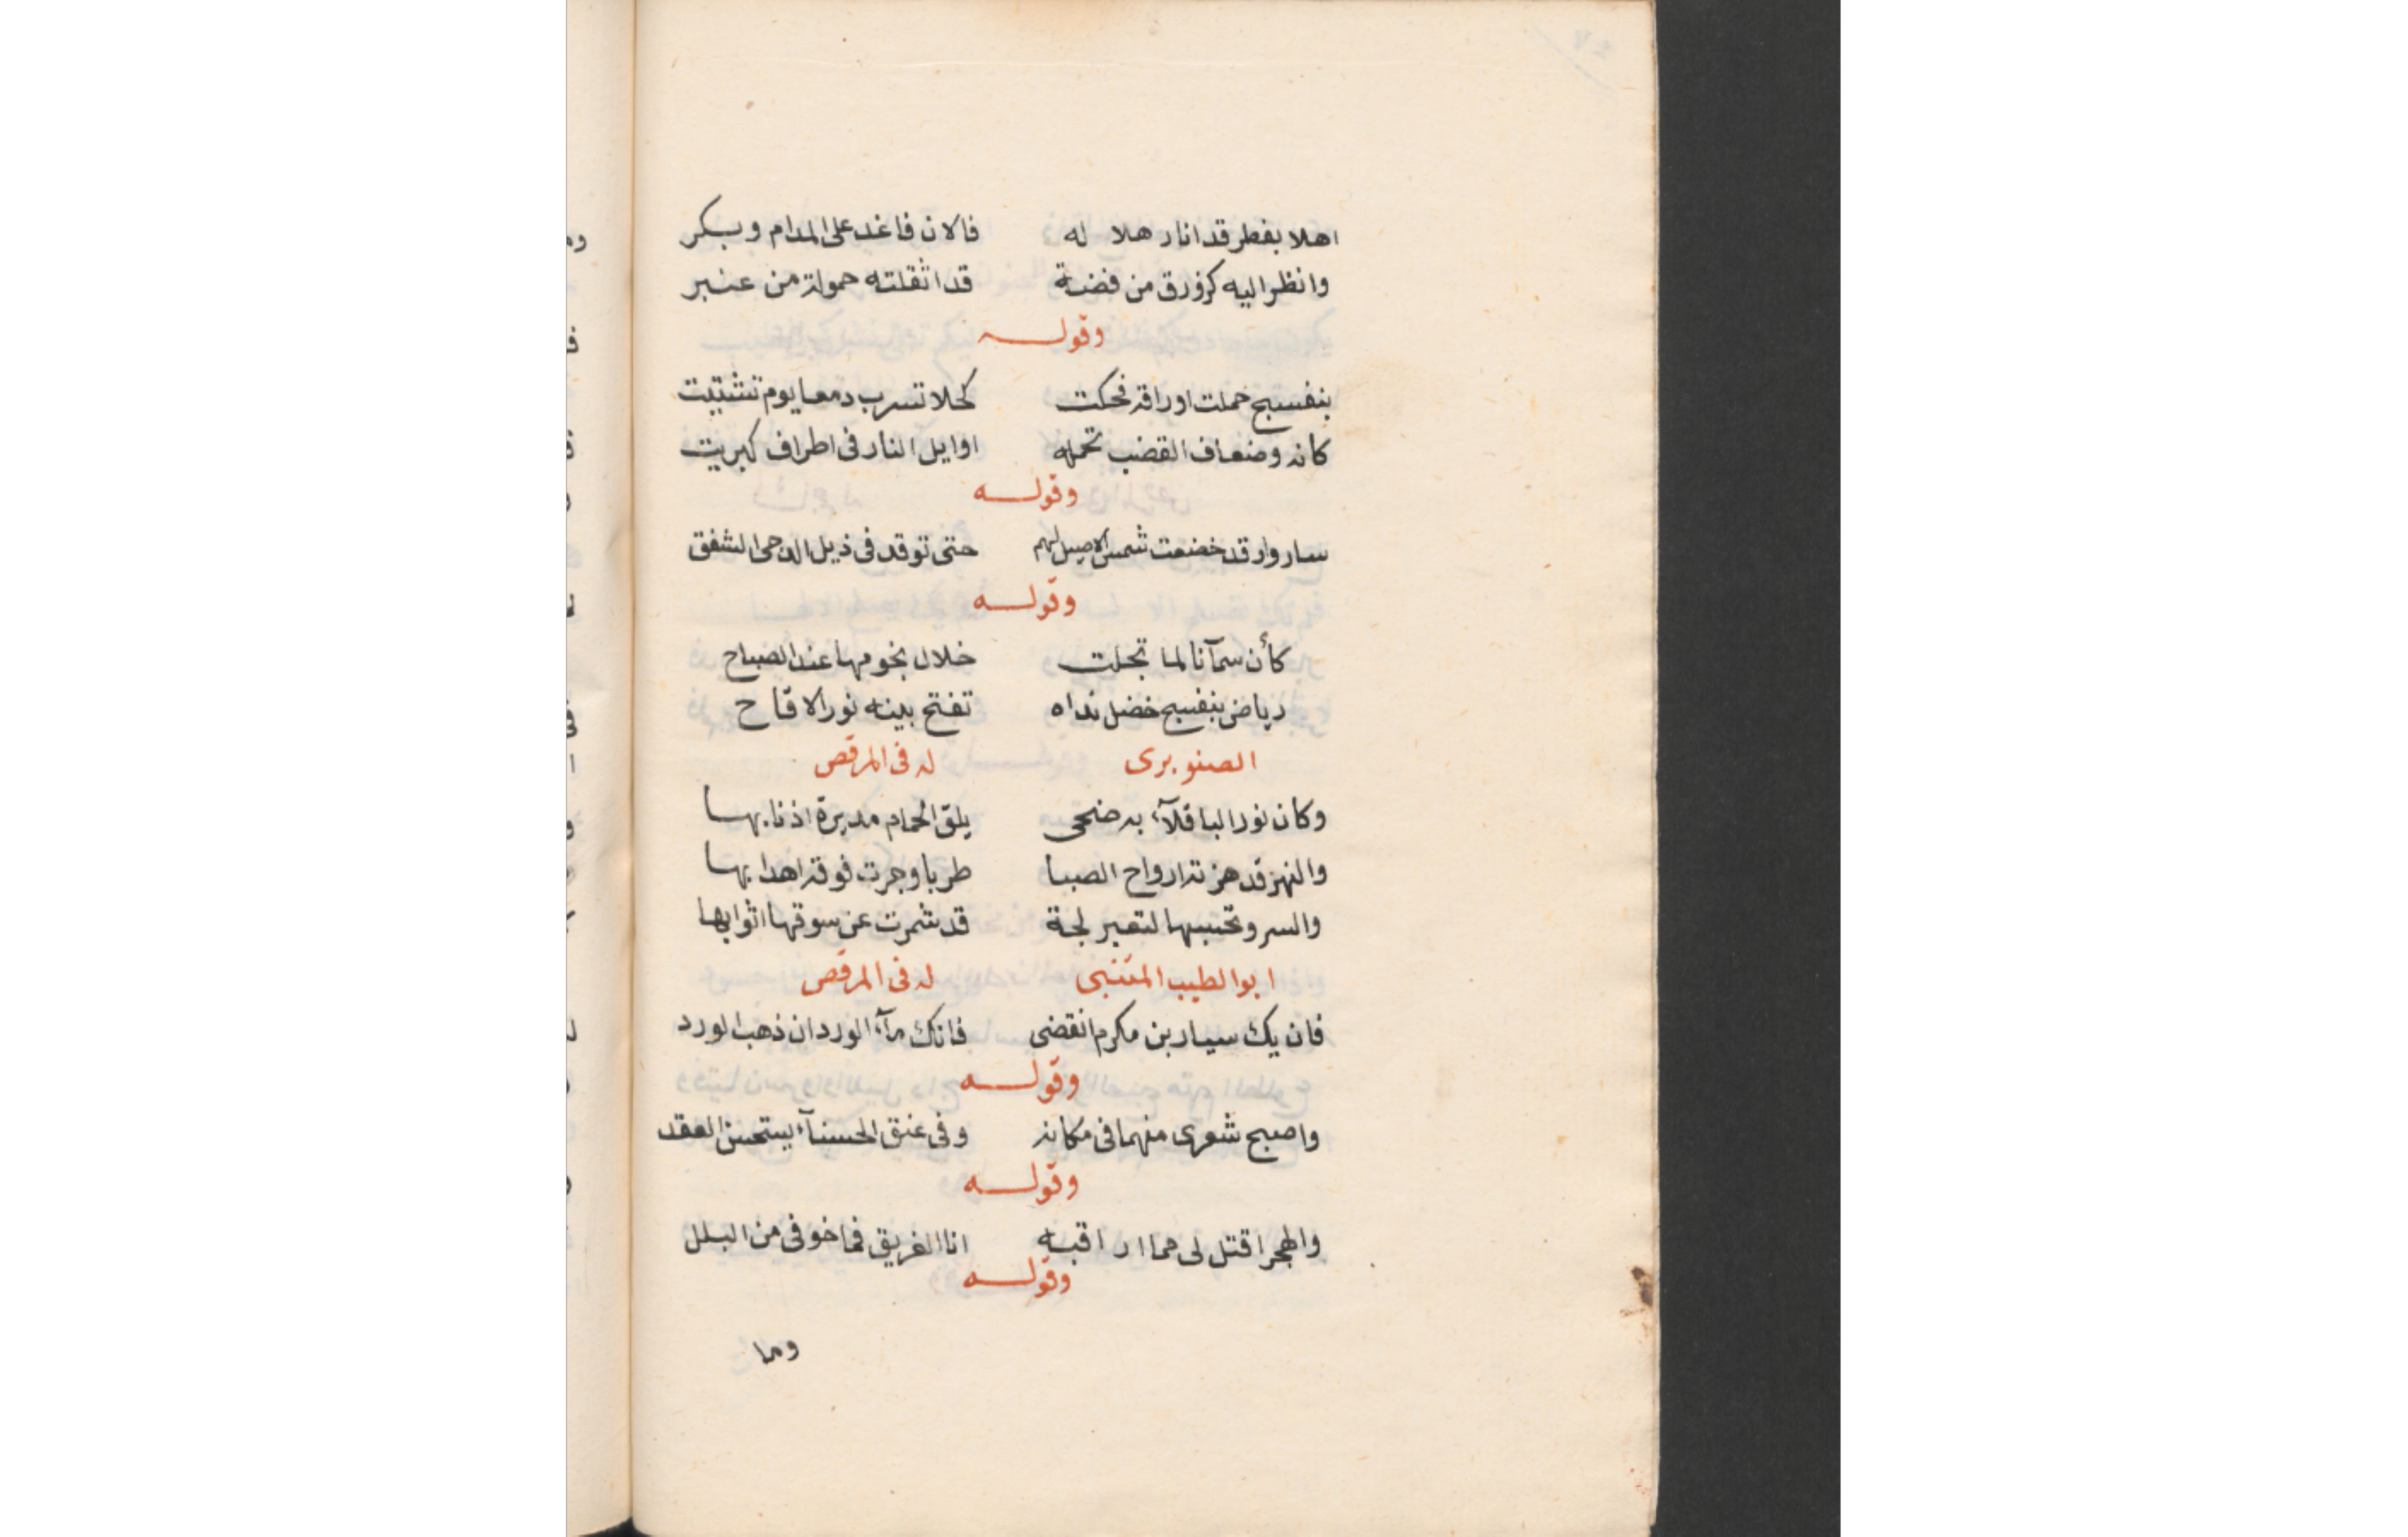 اهلا بفطر قد انار هلا له فالان فاغد على المدام وبكر
وانظر اليه كزورق من فضة قد اثقلته حمولة من عنبر
وقوله
بنفسج جملت اوراقه فحكت كحلا تسرب دمعا يوم تشتيت
كانه وضعاف القضب تحمله اوايل النار فى اطراف كبريت
وقوله
ساروا وقد خضعت شمس الاصيل لهم حتى توقد فى ذيل الدجى الشفق
وقوله
كأن سمآنا لما تجلت خلال نجومها عند الصباح
رياض بنفسج خضل نداه تفتح بينه نور الاقاح
الصنوبرى له فى المرقص
وكان نور الباقلآء به ضحى بلق الحمام مديرة اذنابها
والنهر قد هزته ارواح الصبا طربا وجرت فوقه اهدابها
والسرو تحسبها لتعبر لجة قد شمرت عن سوقها اثوابها
ابو الطيب المتنبى له فى المرقص
فان يك سيار بن مكرم انقضى فانك مآء الورد ان ذهب الورد
وقوله
واصبح شعرى منهما فى مكانه وفى عنق الحسنآء يستحسن العقد
وقوله
والهجر اقتل لى مما اراقبه انا الغريق فما خوفى من البلل
وقوله
وما